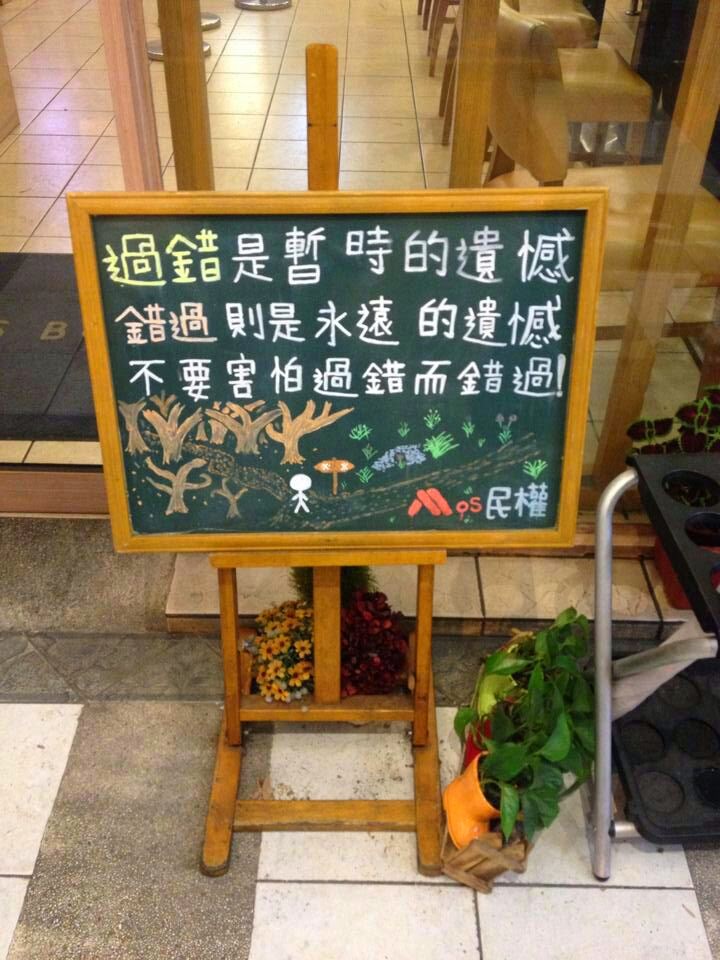 過錯是暫時的遺憾
錯過則是永遠的遺憾
不要害怕過錯而錯過!
MOS民權